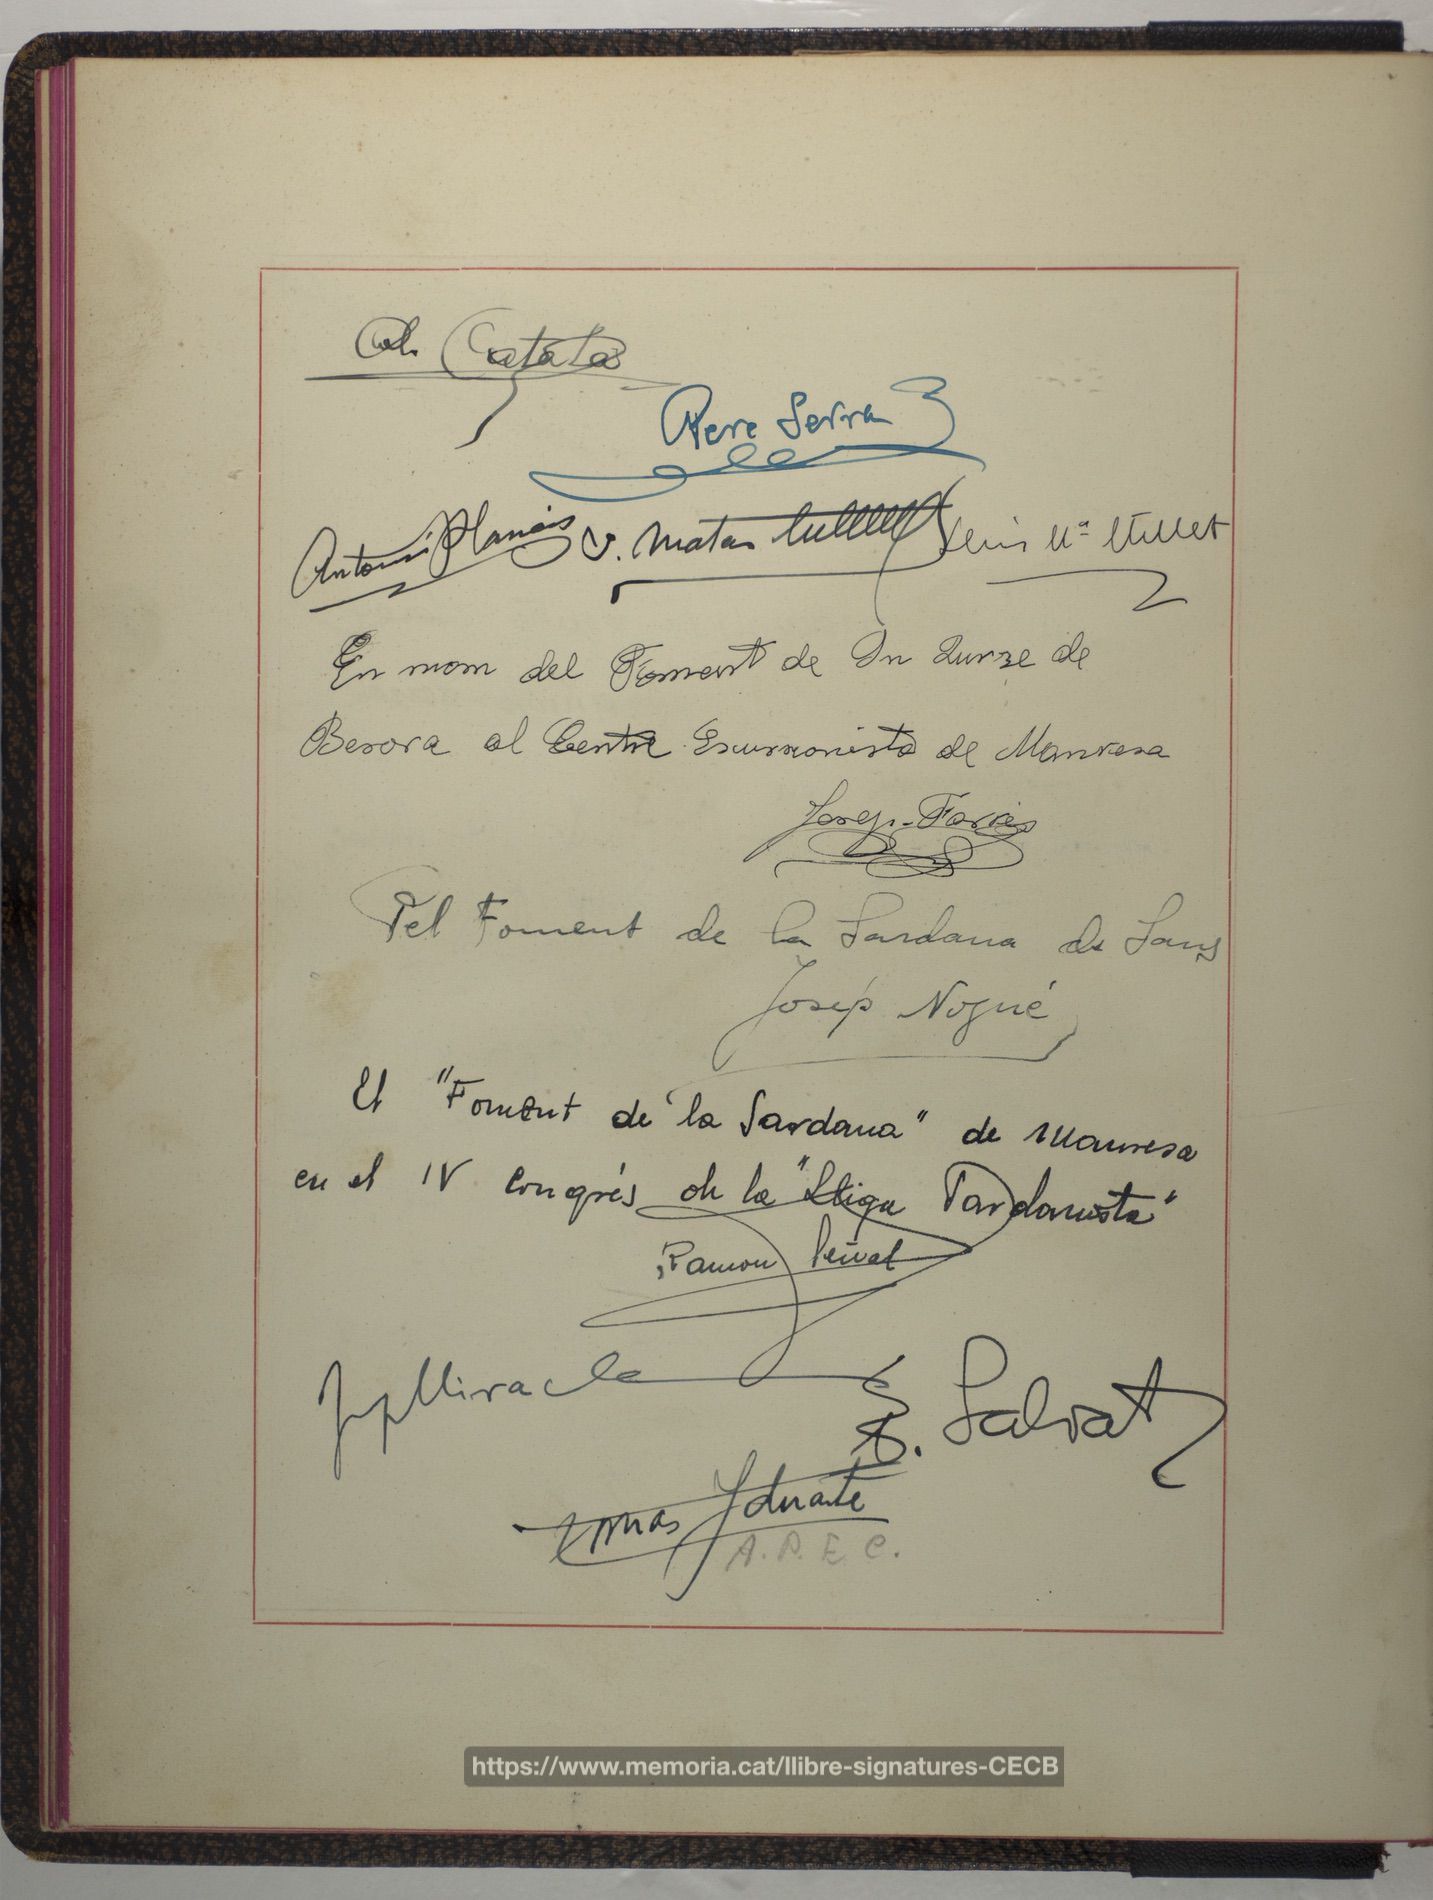 Catalá
Pere Serra
Antoni Planás V. Matas Lluís Mª Millet
En nom del Foment de
Besora al Centre Escursionista de Manresa
Josep Farrés
Pel Foment de la Sardana de Sans
Josép Nogué
El "Foment de la Sardana" de Manresa
en el IV Congrés de la "Lliga Sardanista"
Ramon
Josep Miracle
Salvat
Tomas Yduarte
A.P.E.C.
https://www.memoria.cat/llibre-signatures-CECB